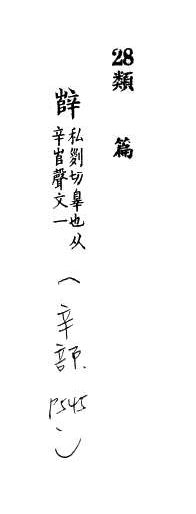 28類 篇
辥 私劉切辠也从
辛𡴎聲文一
（辛部 P545）